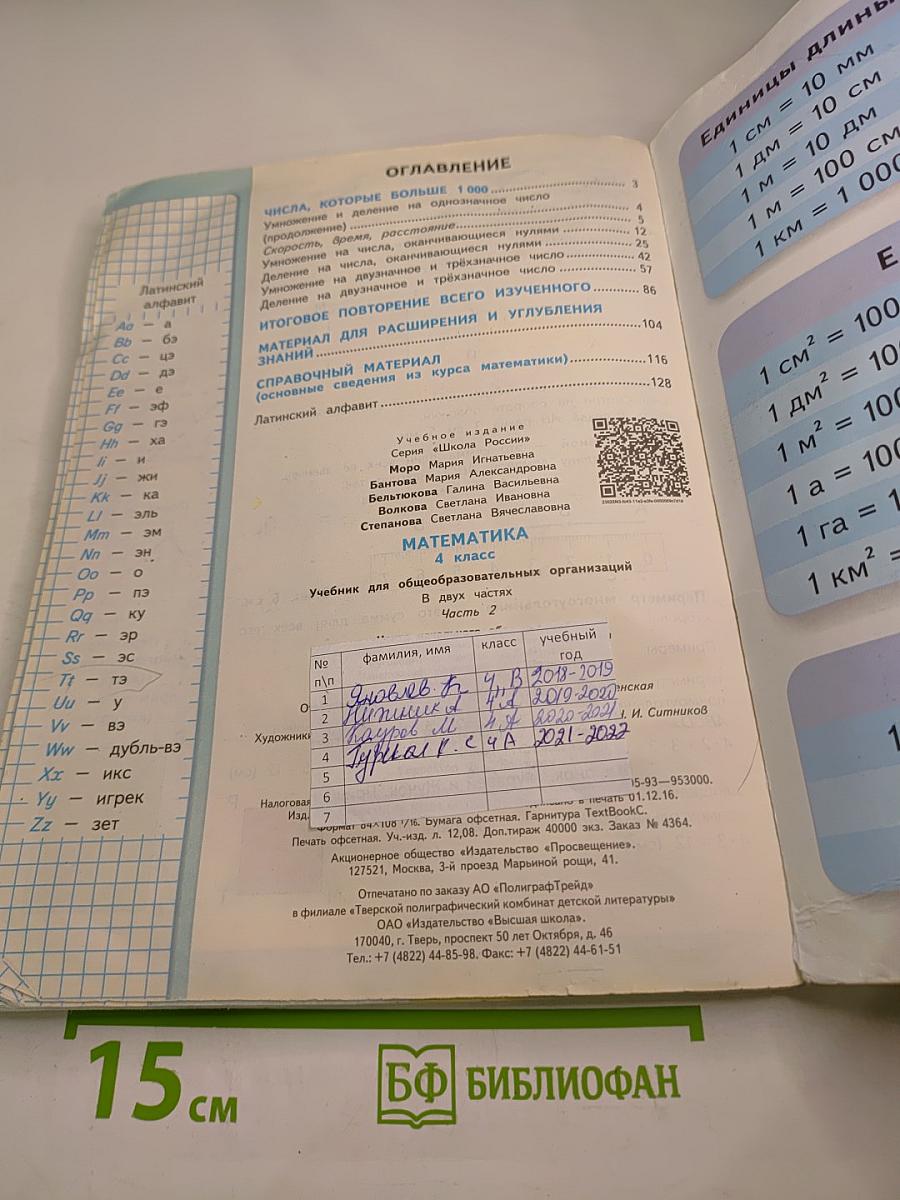 Латинский
алфавит
Aa — а
Bb — бэ
Cc — цэ
Dd — дэ
Ee — е
Ff — эф
Gg — гэ
Hh — ха
Ii — и
Jj — жи
Kk — ка
Ll — эль
Mm — эм
Nn — эн
Oo — о
Pp — пэ
Qq — ку
Rr — эр
Ss — эс
Tt — тэ
Uu — у
Vv — вэ
Ww — дубль-вэ
Xx — икс
Yy — игрек
Zz — зет
ОГЛАВЛЕНИЕ
ЧИСЛА, КОТОРЫЕ БОЛЬШЕ 1 000 3
Умножение и деление на однозначное число
(продолжение) 4
Скорость, время, расстояние 5
Умножение на числа, оканчивающиеся нулями 12
Деление на числа, оканчивающиеся нулями 25
Умножение на двузначное и трёхзначное число 42
Деление на двузначное и трёхзначное число 57
ИТОГОВОЕ ПОВТОРЕНИЕ ВСЕГО ИЗУЧЕННОГО 86
МАТЕРИАЛ ДЛЯ РАСШИРЕНИЯ И УГЛУБЛЕНИЯ
ЗНАНИЙ 104
СПРАВОЧНЫЙ МАТЕРИАЛ
(основные сведения из курса математики) 116
Латинский алфавит 128
Учебное издание
Серия «Школа России»
Моро Мария Игнатьевна
Бантова Мария Александровна
Бельтюкова Галина Васильевна
Волкова Светлана Ивановна
Степанова Светлана Вячеславовна
МАТЕМАТИКА
4 класс
Учебник для общеобразовательных организаций
В двух частях
Часть 2
№ п\п фамилия, имя класс учебный год
1 Яковлев 4 В 2018-2019
2 А 4 А 2019-2020
3 Кауров М 4 А 2020-2021
4 4 А 2021-2022
5
6
7
нская
Художники И. Ситников
Налоговая 05-93—953000.
Изд. в печать 01.12.16.
Формат 84×108 1/16. Бумага офсетная. Гарнитура TextBookC.
Печать офсетная. Уч.-изд. л. 12,08. Доп.тираж 40000 экз. Заказ № 4364.
Акционерное общество «Издательство «Просвещение».
127521, Москва, 3-й проезд Марьиной рощи, 41.
Отпечатано по заказу АО «ПолиграфТрейд»
в филиале «Тверской полиграфический комбинат детской литературы»
ОАО «Издательство «Высшая школа».
170040, г. Тверь, проспект 50 лет Октября, д. 46
Тел.: +7 (4822) 44-85-98. Факс: +7 (4822) 44-61-51
Единицы длины
1 см = 10 мм
1 дм = 10 см
1 м = 10 дм
1 м = 100 см
1 км = 1 000
Е
1 см² = 100
1 дм² = 10
1 м² = 100
1 а = 100
1 га = 1
1 км² =
1
15 см
БФ БИБЛИОФАН